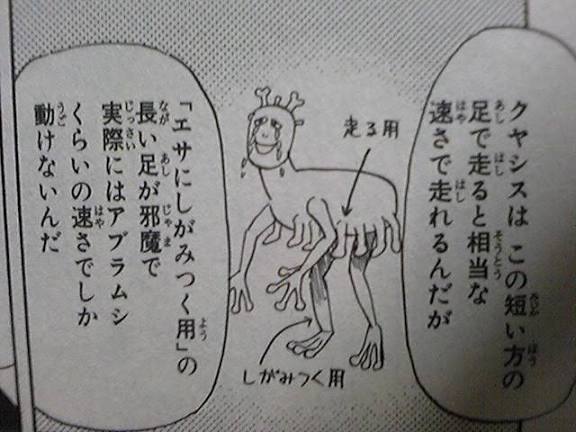 クヤシスは この短い方の
足で走ると相当な
速さで走れるんだが
走る用
しがみつく用
「エサにしがみつく用」の
長い足が邪魔で
実際にはアブラムシ
くらいの速さでしか
動けないんだ